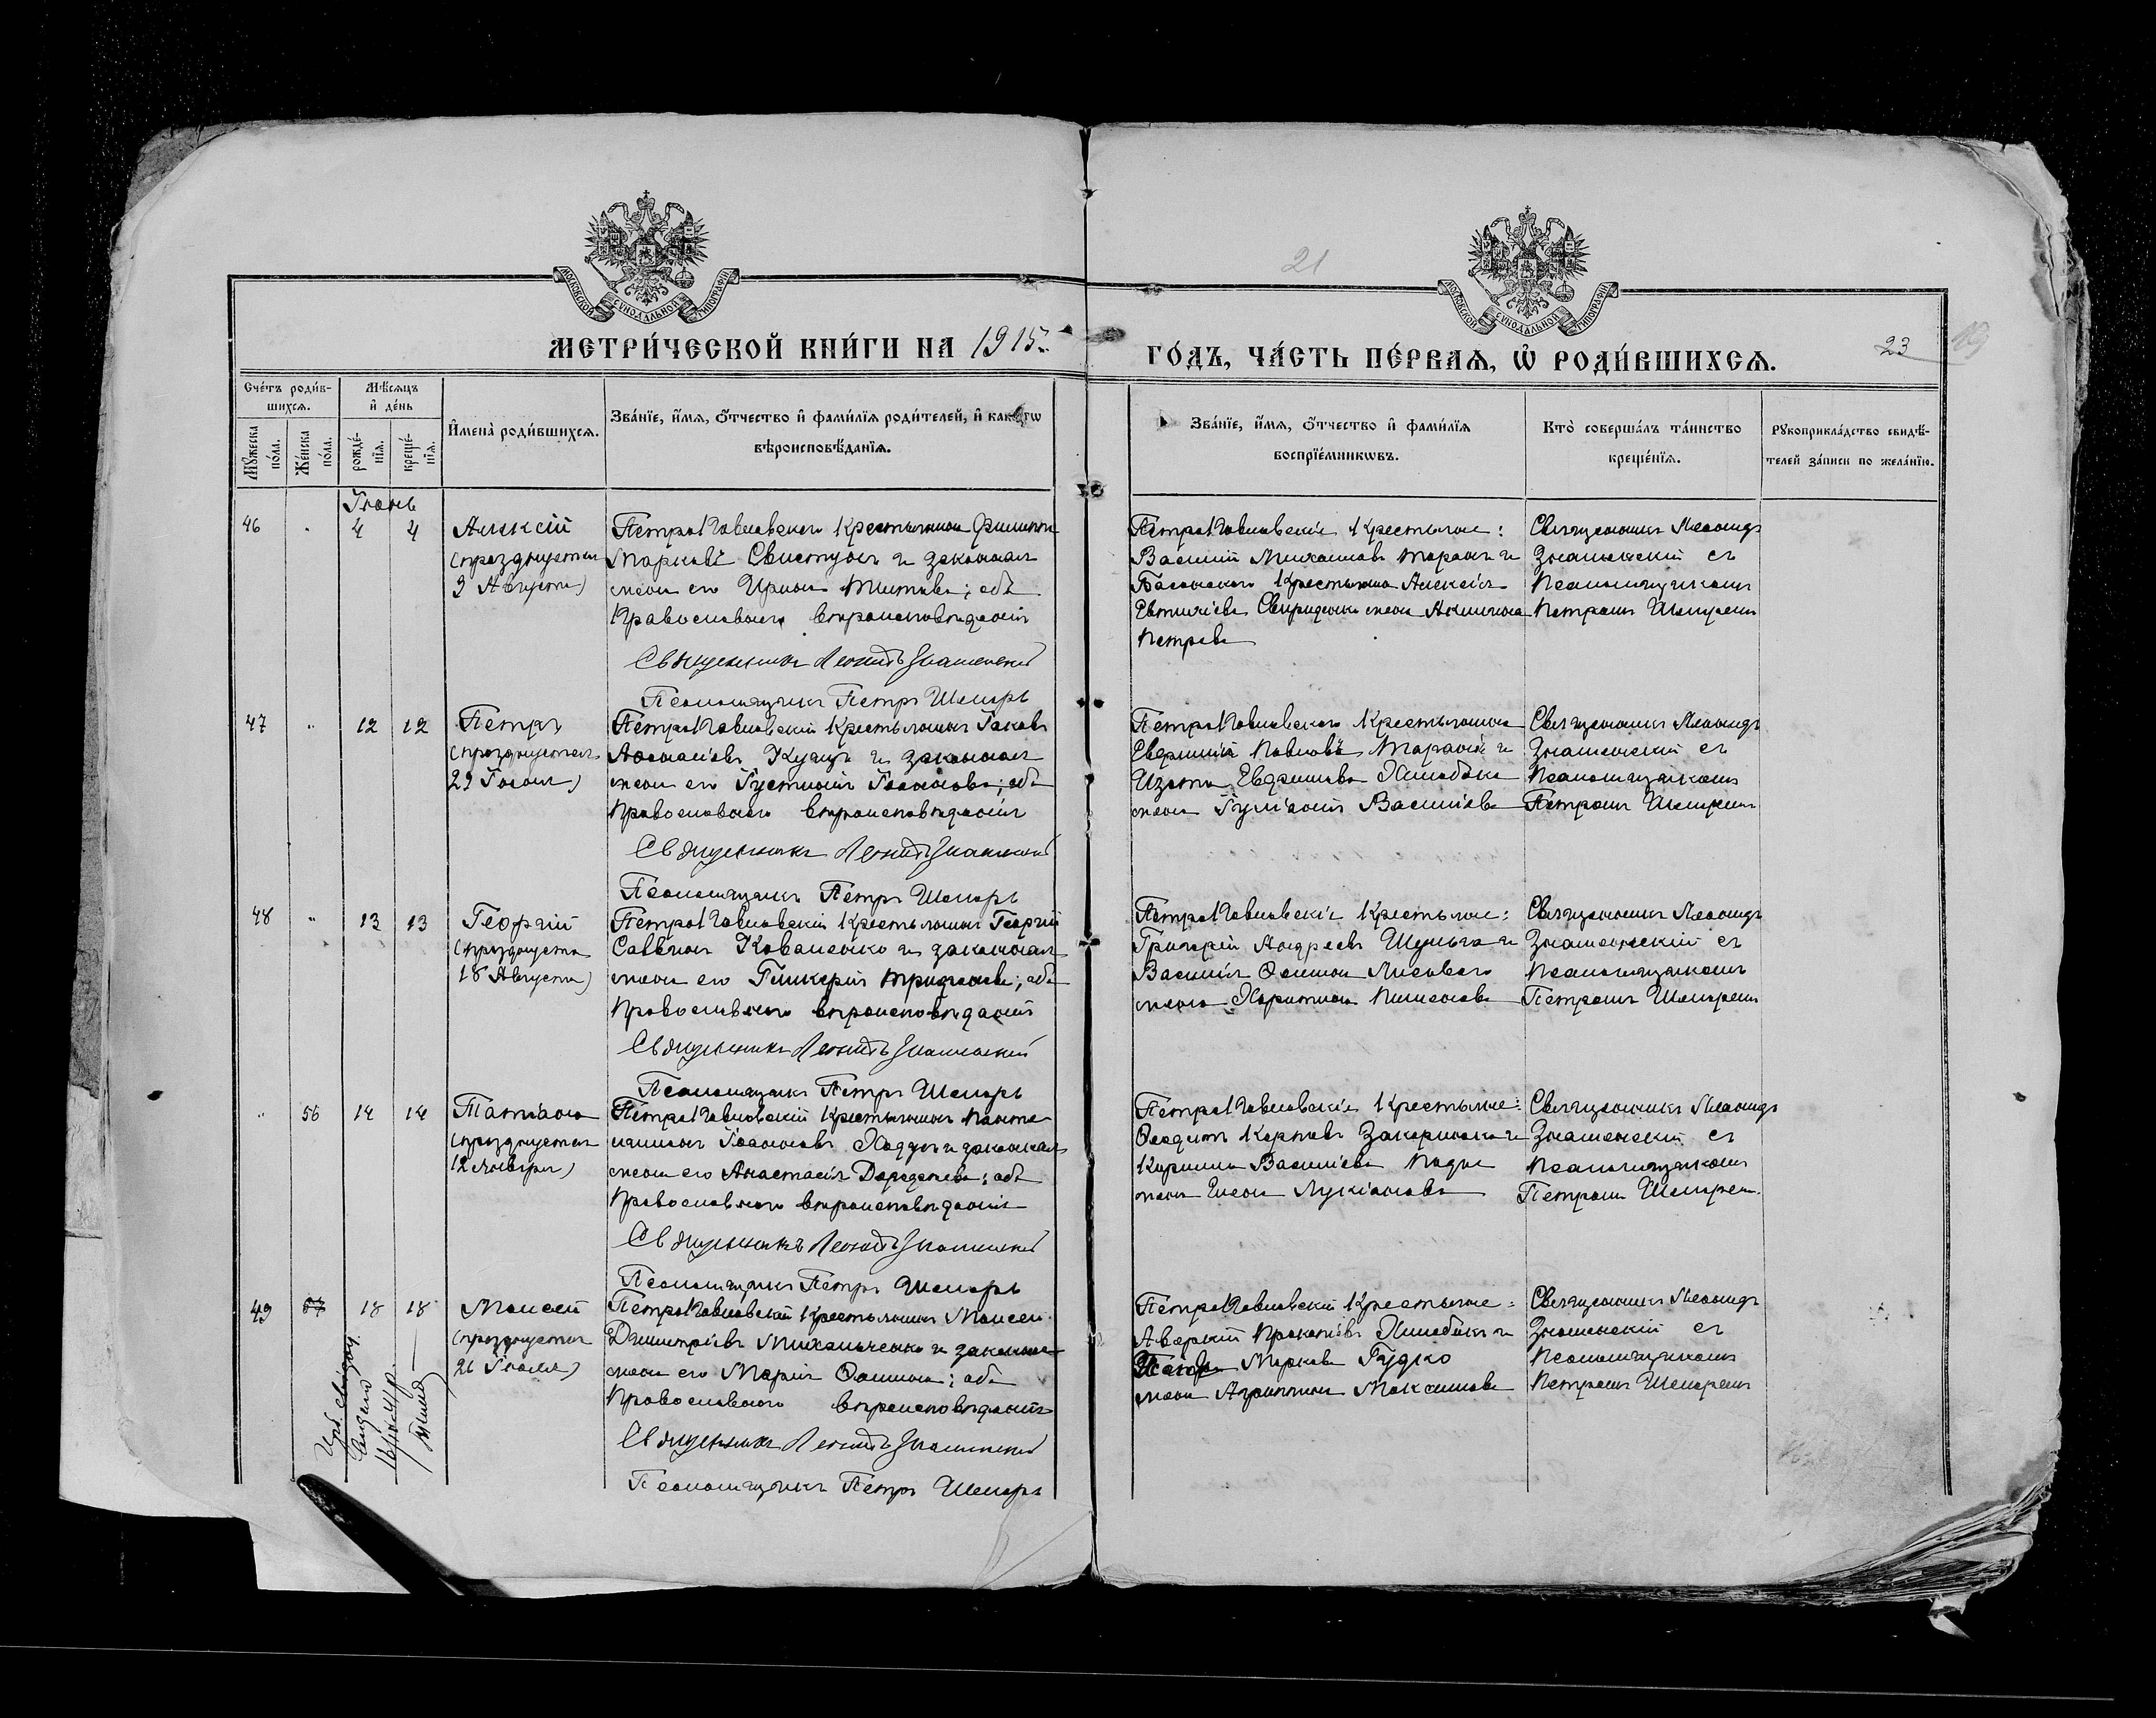 МОСКОВСКОЙ СѴНОДАЛЬНОЙ ТИПОГРАФІИ
МОСКОВСКОЙ СѴНОДАЛЬНОЙ ТИПОГРАФІИ
21
МЕТРИ́ЧЕСКОЙ КНИ́ГИ НА 1915
ГО́ДЪ, ЧА́СТЬ ПЕ́РВАЯ, Ѡ҆ РОДИ́ВШИХСЯ.
23
19
Сче́тъ роди́в-
шихсѧ.
Мꙋ́жеска
по́ла.
Же́нска
по́ла.
Мѣ́сѧцъ
и҆ де́нь
рожде́-
нїѧ.
креще́-
нїѧ.
И҆мена̀ роди́вшихсѧ.
Зва́нїе, и҆́мѧ, ѻ҆́тчество и҆ фами́лїѧ роди́телей, и҆ како́гѡ
вѣроисповѣ́данїѧ.
Зва́нїе, и҆́мѧ, ѻ҆́тчество и҆ фами́лїѧ
воспрїе́мникѡвъ.
Кто̀ соверша́лъ та́инство
креще́нїѧ.
Рꙋкоприкла́дство свидѣ́-
телей за́писи по жела́нїю.
Іюнь
46 " 4 4
Алексій
(празднуется
9 Августа)
Петро Павловскаго крестьянина Филиппа
Маркова Свистунъ и законная
жена его Ирина Титова; оба
Православнаго вѣроисповѣданія
Священникъ Леонидъ Знаменскій
Псаломщикъ Петръ Шепарь
Петро Павловскіе крестьяне:
Василій Михаиловъ Таранъ и
крестьянина Алексія
Евтихіева Свириденко жена Акилина
Петрова
Священникъ Леонидъ
Знаменскій съ
Псаломщикомъ
Петромъ Шепаремъ
47 " 12 12
Петръ
(празднуется
29 Іюня)
Петро Павловскій крестьянинъ Іаковъ
Аѳанасіевъ Куацъ и законная
жена его Іустинія Іоаннова; оба
Православнаго вѣроисповѣданія
Священникъ Леонидъ Знаменскій
Псаломщикъ Петръ Шепарь
Петро Павловскаго крестьянина
Павлова Тараній и
Хлиобека
жена Іуліанія Василіева
Священникъ Леонидъ
Знаменскій съ
Псаломщикомъ
Петромъ Шепаремъ
48 " 13 13
Георгій
(празднуется
18 Августа)
Петро Павловскій крестьянинъ Георгій
Саввинъ Коваленко и законная
жена его Гликерія Трифонова; оба
Православнаго вѣроисповѣданія
Священникъ Леонидъ Знаменскій
Псаломщикъ Петръ Шепарь
Петро Павловскіе крестьяне:
Григорій Андреевъ Шульга и
Василія Ѳомина Лисоваго
жена Харитина Пименова
Священникъ Леонидъ
Знаменскій съ
Псаломщикомъ
Петромъ Шепаремъ
" 56 14 14
Татіана
(празднуется
12 Января)
Петро Павловскій крестьянинъ Панте-
леимонъ Іоанновъ и законная
жена его Анастасія; оба
Православнаго вѣроисповѣданія
Священникъ Леонидъ Знаменскій
Псаломщикъ Петръ Шепарь
Петро Павловскіе крестьяне:
Карповъ и
Кирилла Василіева
жена Лукіанова
Священникъ Леонидъ
Знаменскій съ
Псаломщикомъ
Петромъ Шепаремъ
49 57 18 18
Моисей
(празднуется
26 Іюля)
Петро Павловскій крестьянинъ Моисей
Димитріевъ Михальченко и законная
жена его Марія Ѳомина; оба
Православнаго вѣроисповѣданія
Священникъ Леонидъ Знаменскій
Псаломщикъ Петръ Шепарь
Петро Павловскій крестьяне:
Аверкій Прокопіевъ Хлиобекъ и
Маркова Гудко
жена Агриппина Максимова
Священникъ Леонидъ
Знаменскій съ
Псаломщикомъ
Петромъ Шепаремъ